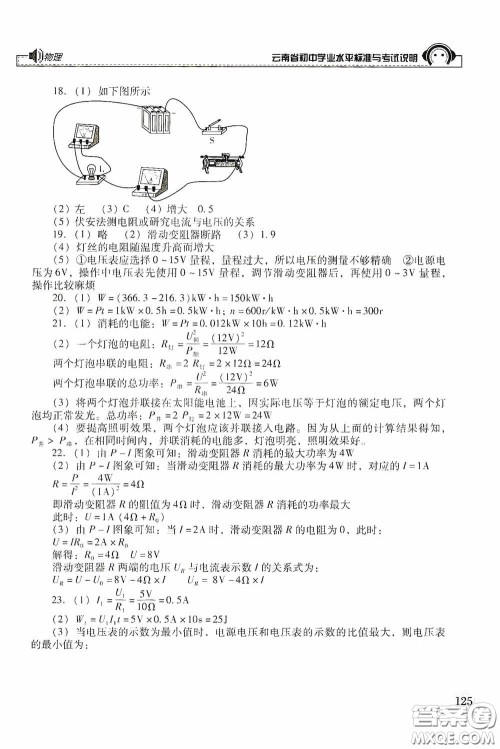 物理
云南省初中学业水平标准与考试说明
18.（1）如下图所示
S
L
（2）左　（3）C　（4）增大　0.5
（5）伏安法测电阻或研究电流与电压的关系
19.（1）略　（2）滑动变阻器断路　（3）1.9
（4）灯丝的电阻随温度升高而增大
（5）①电压表应选择0～15V量程，量程过大，所以电压的测量不够精确　②电源电
压为6V，操作中电压表先使用0～15V量程，调节滑动变阻器后，再使用0～3V量程，
操作比较麻烦
20.（1）W=(366.3-216.3)kW·h=150kW·h
（2）W=Pt=1kW×0.5h=0.5kW·h；n=600r/kW·h×0.5kW·h=300r
21.（1）消耗的电能：W=Pt=0.012kW×10h=0.12kW·h
（2）一个灯泡的电阻：R灯=U²额/P额=(12V)²/12W=12Ω
两个灯泡串联的电阻：R串=2 R灯=2×12Ω=24Ω
两个灯泡串联的总功率：P串=U²/R串=(12V)²/24Ω=6W
（3）将两个灯泡并联接在太阳能电池上，因实际电压等于灯泡的额定电压，两灯
泡均正常发光。总功率：P并=2 P灯=2×12W=24W
（4）要提高照明效果，两个灯泡应该并联接入电路。因为从上面的计算结果得知，
P并＞P串，在相同时间内，并联消耗的电能多，灯泡明亮，照明效果好。
22.（1）由P-I图象可知：滑动变阻器R消耗的最大功率为4W
（2）由P-I图象可知：当滑动变阻器R消耗的最大功率为4W时，对应的I=1A
R=P/I²=4W/(1A)²=4Ω
即滑动变阻器R的阻值为4Ω时，滑动变阻器R消耗的功率最大
此时：U=1A(4Ω+R₀)
（3）由P-I图象可知：当I=2A时，滑动变阻器R的电阻为0，此时：
U=IR₀=2A×R₀
解得：R₀=4Ω　U=8V
滑动变阻器R两端的电压U_R与电流表示数I的关系式为：
U_R=U-U₀=8V-4Ω×I　U_R=8V-4Ω×I
23.（1）I₁=U₁/R₁=5V/10Ω=0.5A
（2）W₁=U₁I₁t=5V×0.5A×10s=25J
（3）当电压表的示数为最小值时，电源电压和电压表的示数的比值最大，则电压表
的示数为：
125
答案圈
MXQE.COM